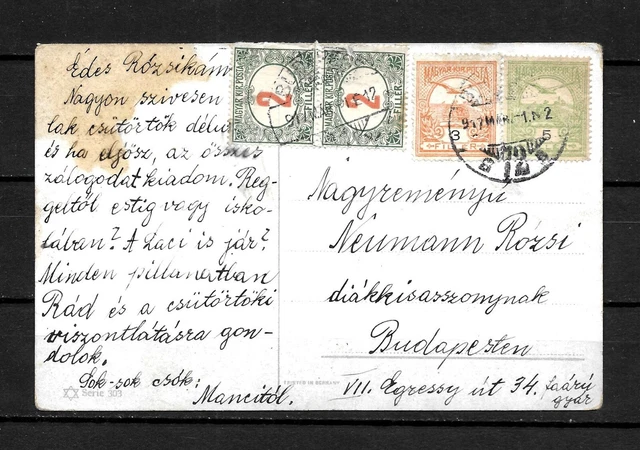 Édes Rózsikám
Nagyon szivesen
lak csütörtök délu
és ha eljösz, az összes
zálogodat kiadom. Reg-
geltől estig vagy isko-
lában? A Laci is jár?
Minden pillanatban
Rád és a csütörtöki
viszontlátásra gon-
dolok.
Sok-sok csók:
Mancitól.
Serie 303
MAGYAR KIR. POSTA
2
FILLER
MAGYAR KIR. POSTA
2
FILLER
MAGYAR KIR. POSTA
3
FILLER
5
Nagyreményü
Neumann Rózsi
diákkisasszonynak
Budapesten
VII. Egressy út 34. faárú
gyár